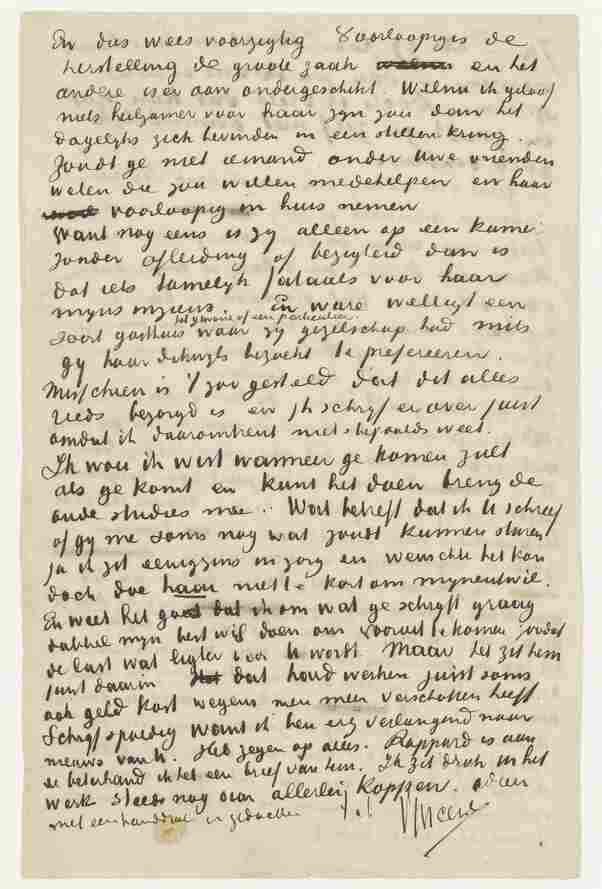 En dus wees voorzigtig Voorloopig is de
herstelling de groote zaak en het
andere is er aan ondergeschikt. Welnu ik geloof
niets heilzamer voor haar zyn zou dan het
dagelyks zich bevinden in een stillen kring.
Zoudt ge niet iemand onder Uwe vrienden
weten die zou willen medehelpen en haar
voorloopig in huis nemen
Want nog eens is zy alleen op een kamer
zonder afleiding of bezigheid dan is
dat iets tamelyk fataals voor haar
myns inziens. En ware welligt een
hetzy mooie of een particulier
soort gasthuis waar zy gezelschap had mits
gy haar dikwyls bezocht te prefereeren.
Misschien is 't zoo gesteld dat dit alles
reeds bezorgd is en ik schryf er over juist
omdat ik daaromtrent niets bepaalds weet.
Ik wou ik wist wanneer ge komen zult
als ge komt en kunt het doen breng de
oude studies mee. Wat betreft dat ik U schreef
of gy me soms nog wat zoudt kunnen sturen
ja ik zit eenigzins in zorg en wenschte het kon
doch doe haar niet te kort om mynentwil.
En weet het goed dat ik om wat ge schryft graag
dubbel myn best wil doen om vooruit te komen zoodat
de last wat ligter voor U wordt. Maar het zit hem
juist daarin dat hard werken juist soms
ook geld kost wegens men meer verschotten heeft.
Schryf spoedig want ik ben erg verlangend naar
nieuws van U. Heb zegen op alles. Rappard is aan
de beterhand ik heb een brief van hem. Ik zit druk in het
werk steeds nog over allerlei koppen. adieu
met een handdruk in gedachten t. t. Vincent